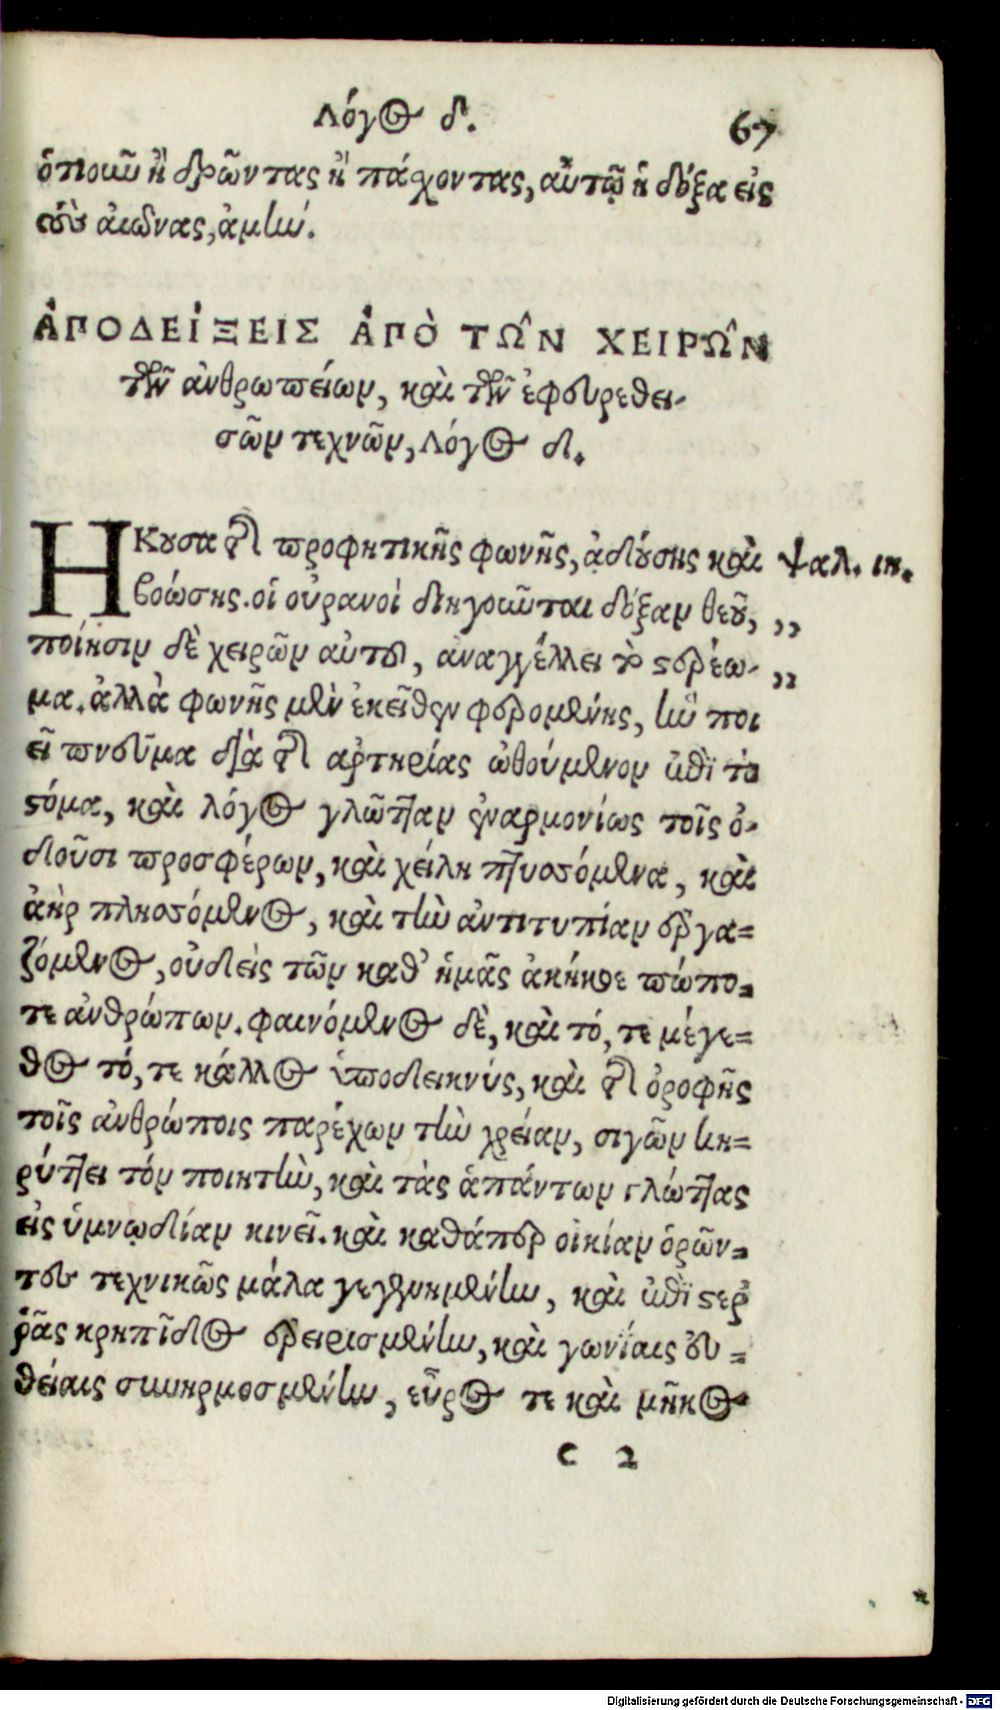 Λόγος δ. 67
ὁποιοῦν ἢ δρῶντας ἢ πάχοντας, αὐτῷ ἡ δόξα εἰς
τοὺς αἰῶνας, ἀμήν.
ἈΠΟΔΕΊΞΕΙΣ ἈΠῸ ΤΩ͂Ν ΧΕΙΡΩ͂Ν
τῶν ἀνθρωπείων, καὶ τῶν ἐφευρεθει-
σῶν τεχνῶν, Λόγος δ.
ΗΚουσα τῆς προφητικῆς φωνῆς, ᾀδούσης καὶ ψαλ. ιη.
βοώσης. οἱ οὐρανοὶ διηγοῦνται δόξαν θεοῦ, ,,
ποίησιν δὲ χειρῶν αὐτοῦ, ἀναγγέλλει τὸ στερέω- ,,
μα. ἀλλὰ φωνῆς μὲν ἐκεῖθεν φερομένης, ἣν ποι
εῖ πνεῦμα διὰ τῆς ἀρτηρίας ὠθούμενον ἐπὶ τὸ
στόμα, καὶ λόγος γλῶτταν ἐναρμονίως τοῖς ὀ-
δοῦσι προσφέρων, καὶ χείλη πτυσσόμενα, καὶ
ἀὴρ πλησσόμενος, καὶ τὴν ἀντιτυπίαν ἐργα-
ζόμενος, οὐδεὶς τῶν καθ' ἡμᾶς ἀκήκοε πώπο-
τε ἀνθρώπων. φαινόμενος δὲ, καὶ τό, τε μέγε-
θος τό, τε κάλλος ὑποδεικνύς, καὶ τῆς ὀροφῆς
τοῖς ἀνθρώποις παρέχων τὴν χρείαν, σιγῶν κη-
ρύττει τὸν ποιητὴν, καὶ τὰς ἁπάντων γλώττας
εἰς ὑμνῳδίαν κινεῖ. καὶ καθάπερ οἰκίαν ὁρῶν-
τες τεχνικῶς μάλα γεγενημένην, καὶ ἐπὶ στερ
ρᾶς κρηπῖδος ἐρειρισμένην, καὶ γωνίαις εὐ-
θείαις συνηρμοσμένην, εὖρος τε καὶ μῆκος
c 2
Digitalisierung gefördert durch die Deutsche Forschungsgemeinschaft - DFG